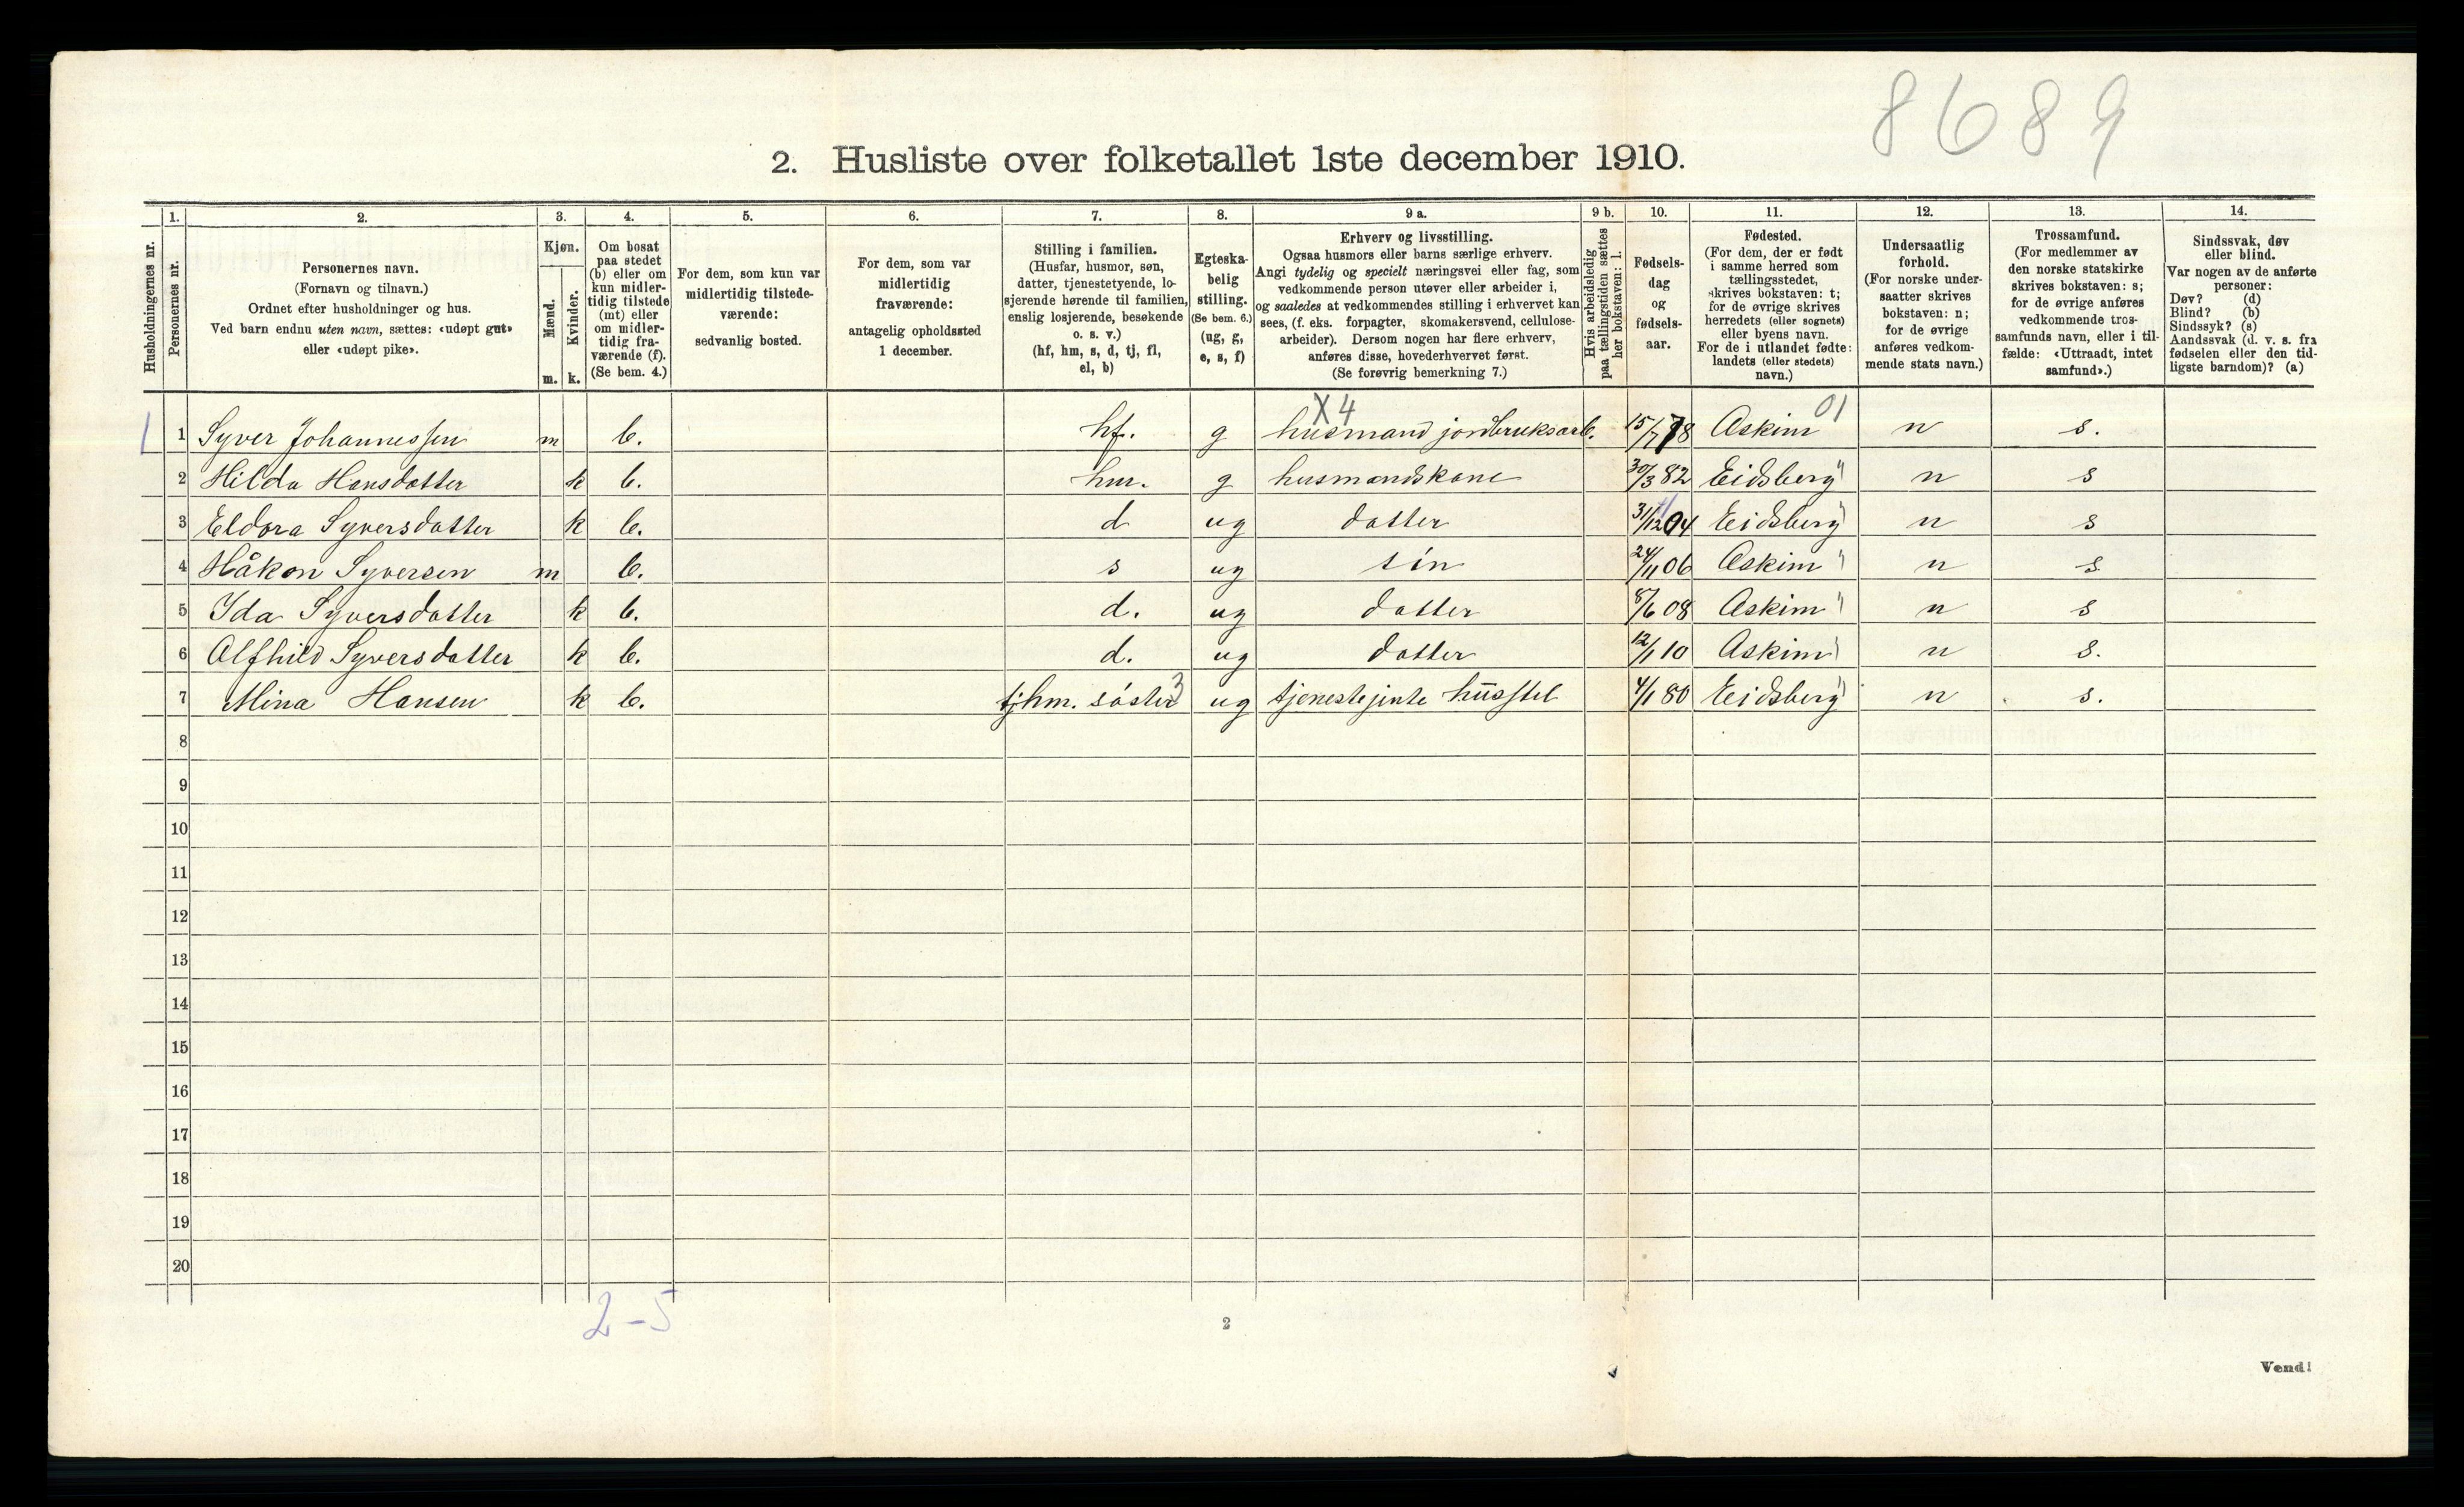 8689
2. Husliste over folketallet 1ste december 1910.
1. 2. 3. 4. 5. 6. 7. 8. 9 a. 9 b. 10. 11. 12. 13. 14.
Husholdningernes nr.
Personernes nr.
Personernes navn.
(Fornavn og tilnavn.)
Ordnet efter husholdninger og hus.
Ved barn endnu uten navn, sættes: «udøpt gut»
eller «udøpt pike».
Kjøn.
Mænd.
Kvinder.
m. k.
Om bosat
paa stedet
(b) eller om
kun midler-
tidig tilstede
(mt) eller
om midler-
tidig fra-
værende (f).
(Se bem. 4.)
For dem, som kun var
midlertidig tilstede-
værende:
sedvanlig bosted.
For dem, som var
midlertidig
fraværende:
antagelig opholdssted
1 december.
Stilling i familien.
(Husfar, husmor, søn,
datter, tjenestetyende, lo-
sjerende hørende til familien,
enslig losjerende, besøkende
o. s. v.)
(hf, hm, s, d, tj, fl,
el, b)
Egteska-
belig
stilling.
(Se bem. 6.)
(ug, g,
e, s, f)
Erhverv og livsstilling.
Ogsaa husmors eller barns særlige erhverv.
Angi tydelig og specielt næringsvei eller fag, som
vedkommende person utøver eller arbeider i,
og saaledes at vedkommendes stilling i erhvervet kan
sees, (f. eks. forpagter, skomakersvend, cellulose-
arbeider). Dersom nogen har flere erhverv,
anføres disse, hovederhvervet først.
(Se forøvrig bemerkning 7.)
Hvis arbeidsledig
paa tællingstiden sættes
her bokstaven: l.
Fødsels-
dag
og
fødsels-
aar.
Fødested.
(For dem, der er født
i samme herred som
tællingsstedet,
skrives bokstaven: t;
for de øvrige skrives
herredets (eller sognets)
eller byens navn.
For de i utlandet fødte:
landets (eller stedets)
navn.)
Undersaatlig
forhold.
(For norske under-
saatter skrives
bokstaven: n;
for de øvrige
anføres vedkom-
mende stats navn.)
Trossamfund.
(For medlemmer av
den norske statskirke
skrives bokstaven: s;
for de øvrige anføres
vedkommende tros-
samfunds navn, eller i til-
fælde: «Uttraadt, intet
samfund».)
Sindssvak, døv
eller blind.
Var nogen av de anførte
personer:
Døv? (d)
Blind? (b)
Sindssyk? (s)
Aandssvak (d. v. s. fra
fødselen eller den tid-
ligste barndom)? (a)
X4 01
1 1 Syver Johannessen m b. hf. g husmand jordbruksarb. 15/7 78 Askim n s.
2 Hilda Hansdatter k b. hm. g husmandskone 30/3 82 Eidsberg " n s
3 Eldora Syversdatter k b. d ug datter 31/12 04 Eidsberg " n s
4 Håkon Syversen m b. s ug sön 24/11 06 Askim " n s
5 Ida Syversdatter k b. d. ug datter 8/6 08 Askim " n s
6 Alfhild Syversdatter k b. d. ug datter 12/1 10 Askim " n s.
7 Mina Hansen k b. tj hm. söster 3 ug tjenestejinte husstel 4/1 80 Eidsberg " n s.
8
9
10
11
12
13
14
15
16
17
18
19
20
2-5
2
Vend!